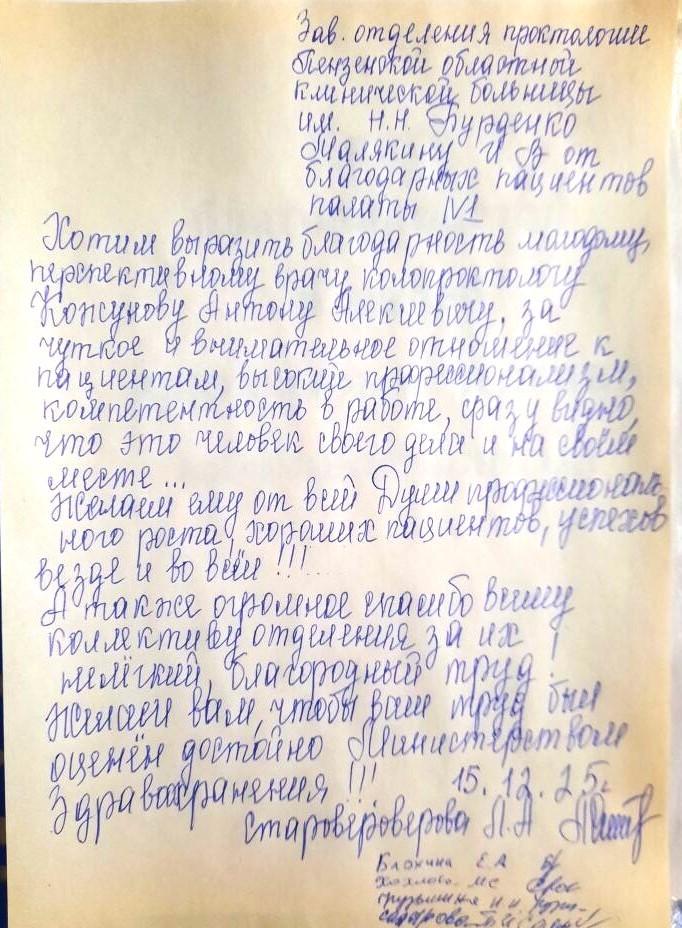 Зав. отделения проктологии
Пензенской областной
клинической больницы
им. Н.Н. Бурденко
Малякину И В от
благодарных пациентов
палаты №1
Хотим выразить благодарность молодому,
перспективному врачу колопроктологу
Кожунову Антону Алексеевичу, за
чуткое и внимательное отношение к
пациентам, высокий профессионализм,
компетентность в работе, сразу видно,
что это человек своего дела и на своём
месте...
Желаем ему от всей Души профессиональ-
ного роста, хороших пациентов, успехов
везде и во всём!!!
А также огромное спасибо всему
коллективу отделения за их
нелёгкий, благородный труд!
Желаем вам, чтобы ваш труд был
оценён достойно Министерством
Здравоохранения!!! 15.12.25г
Староверова Л.А
Блохина Е.А
Хохлова МС